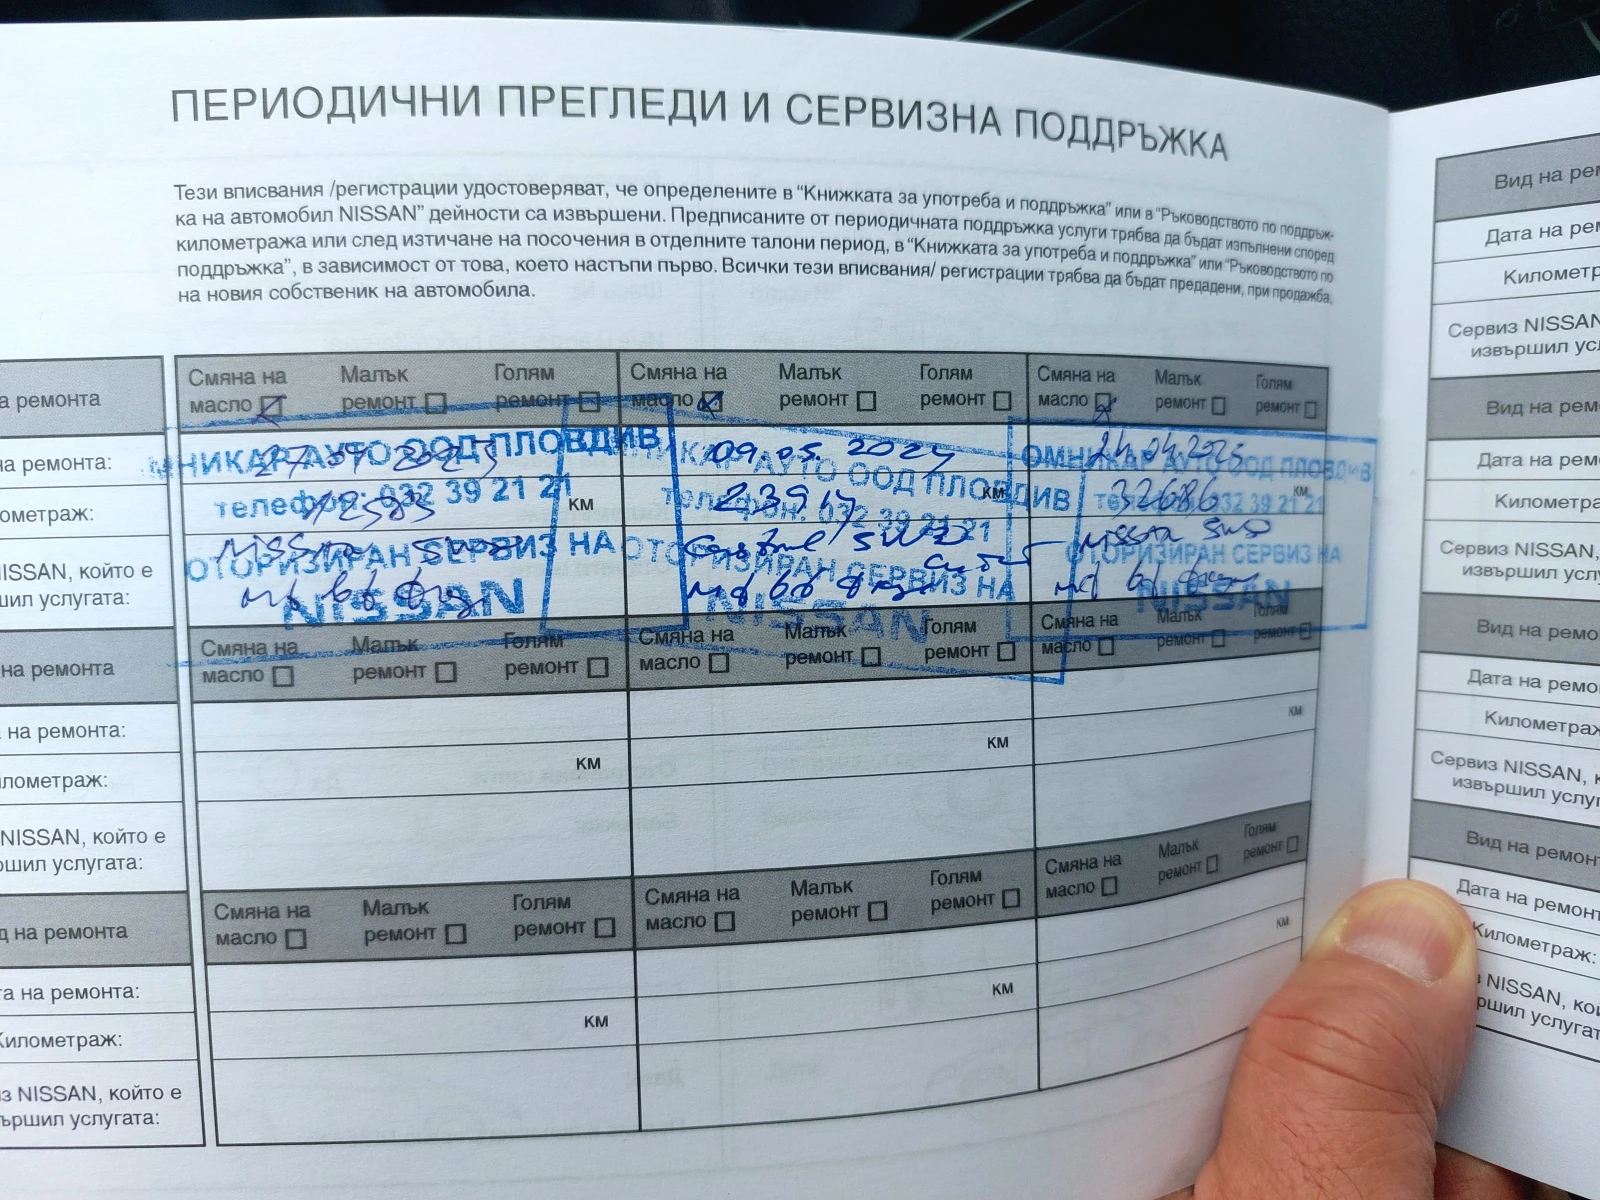 ПЕРИОДИЧНИ ПРЕГЛЕДИ И СЕРВИЗНА ПОДДРЪЖКА
Тези вписвания /регистрации удостоверяват, че определените в “Книжката за употреба и поддръжка” или в “Ръководството по поддръж-
ка на автомобил NISSAN” дейности са извършени. Предписаните от периодичната поддръжка услуги трябва да бъдат изпълнени според
километража или след изтичане на посочения в отделните талони период, в “Книжката за употреба и поддръжка” или “Ръководството по
поддръжка”, в зависимост от това, което настъпи първо. Всички тези вписвания/ регистрации трябва да бъдат предадени, при продажба,
на новия собственик на автомобила.
а ремонта Смяна на масло Малък ремонт Голям ремонт Смяна на масло Малък ремонт Голям ремонт Смяна на масло Малък ремонт Голям ремонт
на ремонта: 09.05.2024 24.04.2025
ометраж: КМ 23917 КМ 32686 КМ
NISSAN, който е
шил услугата:
НИКАР АУТО ООД ПЛОВДИВ
телефон: 032 39 21 21
ОТОРИЗИРАН СЕРВИЗ НА
NISSAN
НИКАР АУТО ООД ПЛОВДИВ
телефон: 032 39 21 21
ОТОРИЗИРАН СЕРВИЗ НА
NISSAN
ОМНИКАР АУТО ООД ПЛОВДИВ
телефон: 032 39 21 21
ОТОРИЗИРАН СЕРВИЗ НА
NISSAN
на ремонта Смяна на масло Малък ремонт Голям ремонт Смяна на масло Малък ремонт Голям ремонт Смяна на масло Малък ремонт Голям ремонт
на ремонта:
илометраж: КМ КМ КМ
NISSAN, който е
ършил услугата:
д на ремонта Смяна на масло Малък ремонт Голям ремонт Смяна на масло Малък ремонт Голям ремонт Смяна на масло Малък ремонт Голям ремонт
та на ремонта:
Километраж: КМ КМ КМ
з NISSAN, който е
вършил услугата:
Вид на рем
Дата на рем
Километр
Сервиз NISSAN
извършил усл
Вид на рем
Дата на ремо
Километра
Сервиз NISSAN,
извършил услу
Вид на ремо
Дата на ремо
Километраж
Сервиз NISSAN, к
извършил услуг
Вид на ремонт
Дата на ремонт
Километраж:
NISSAN, кой
ршил услугат